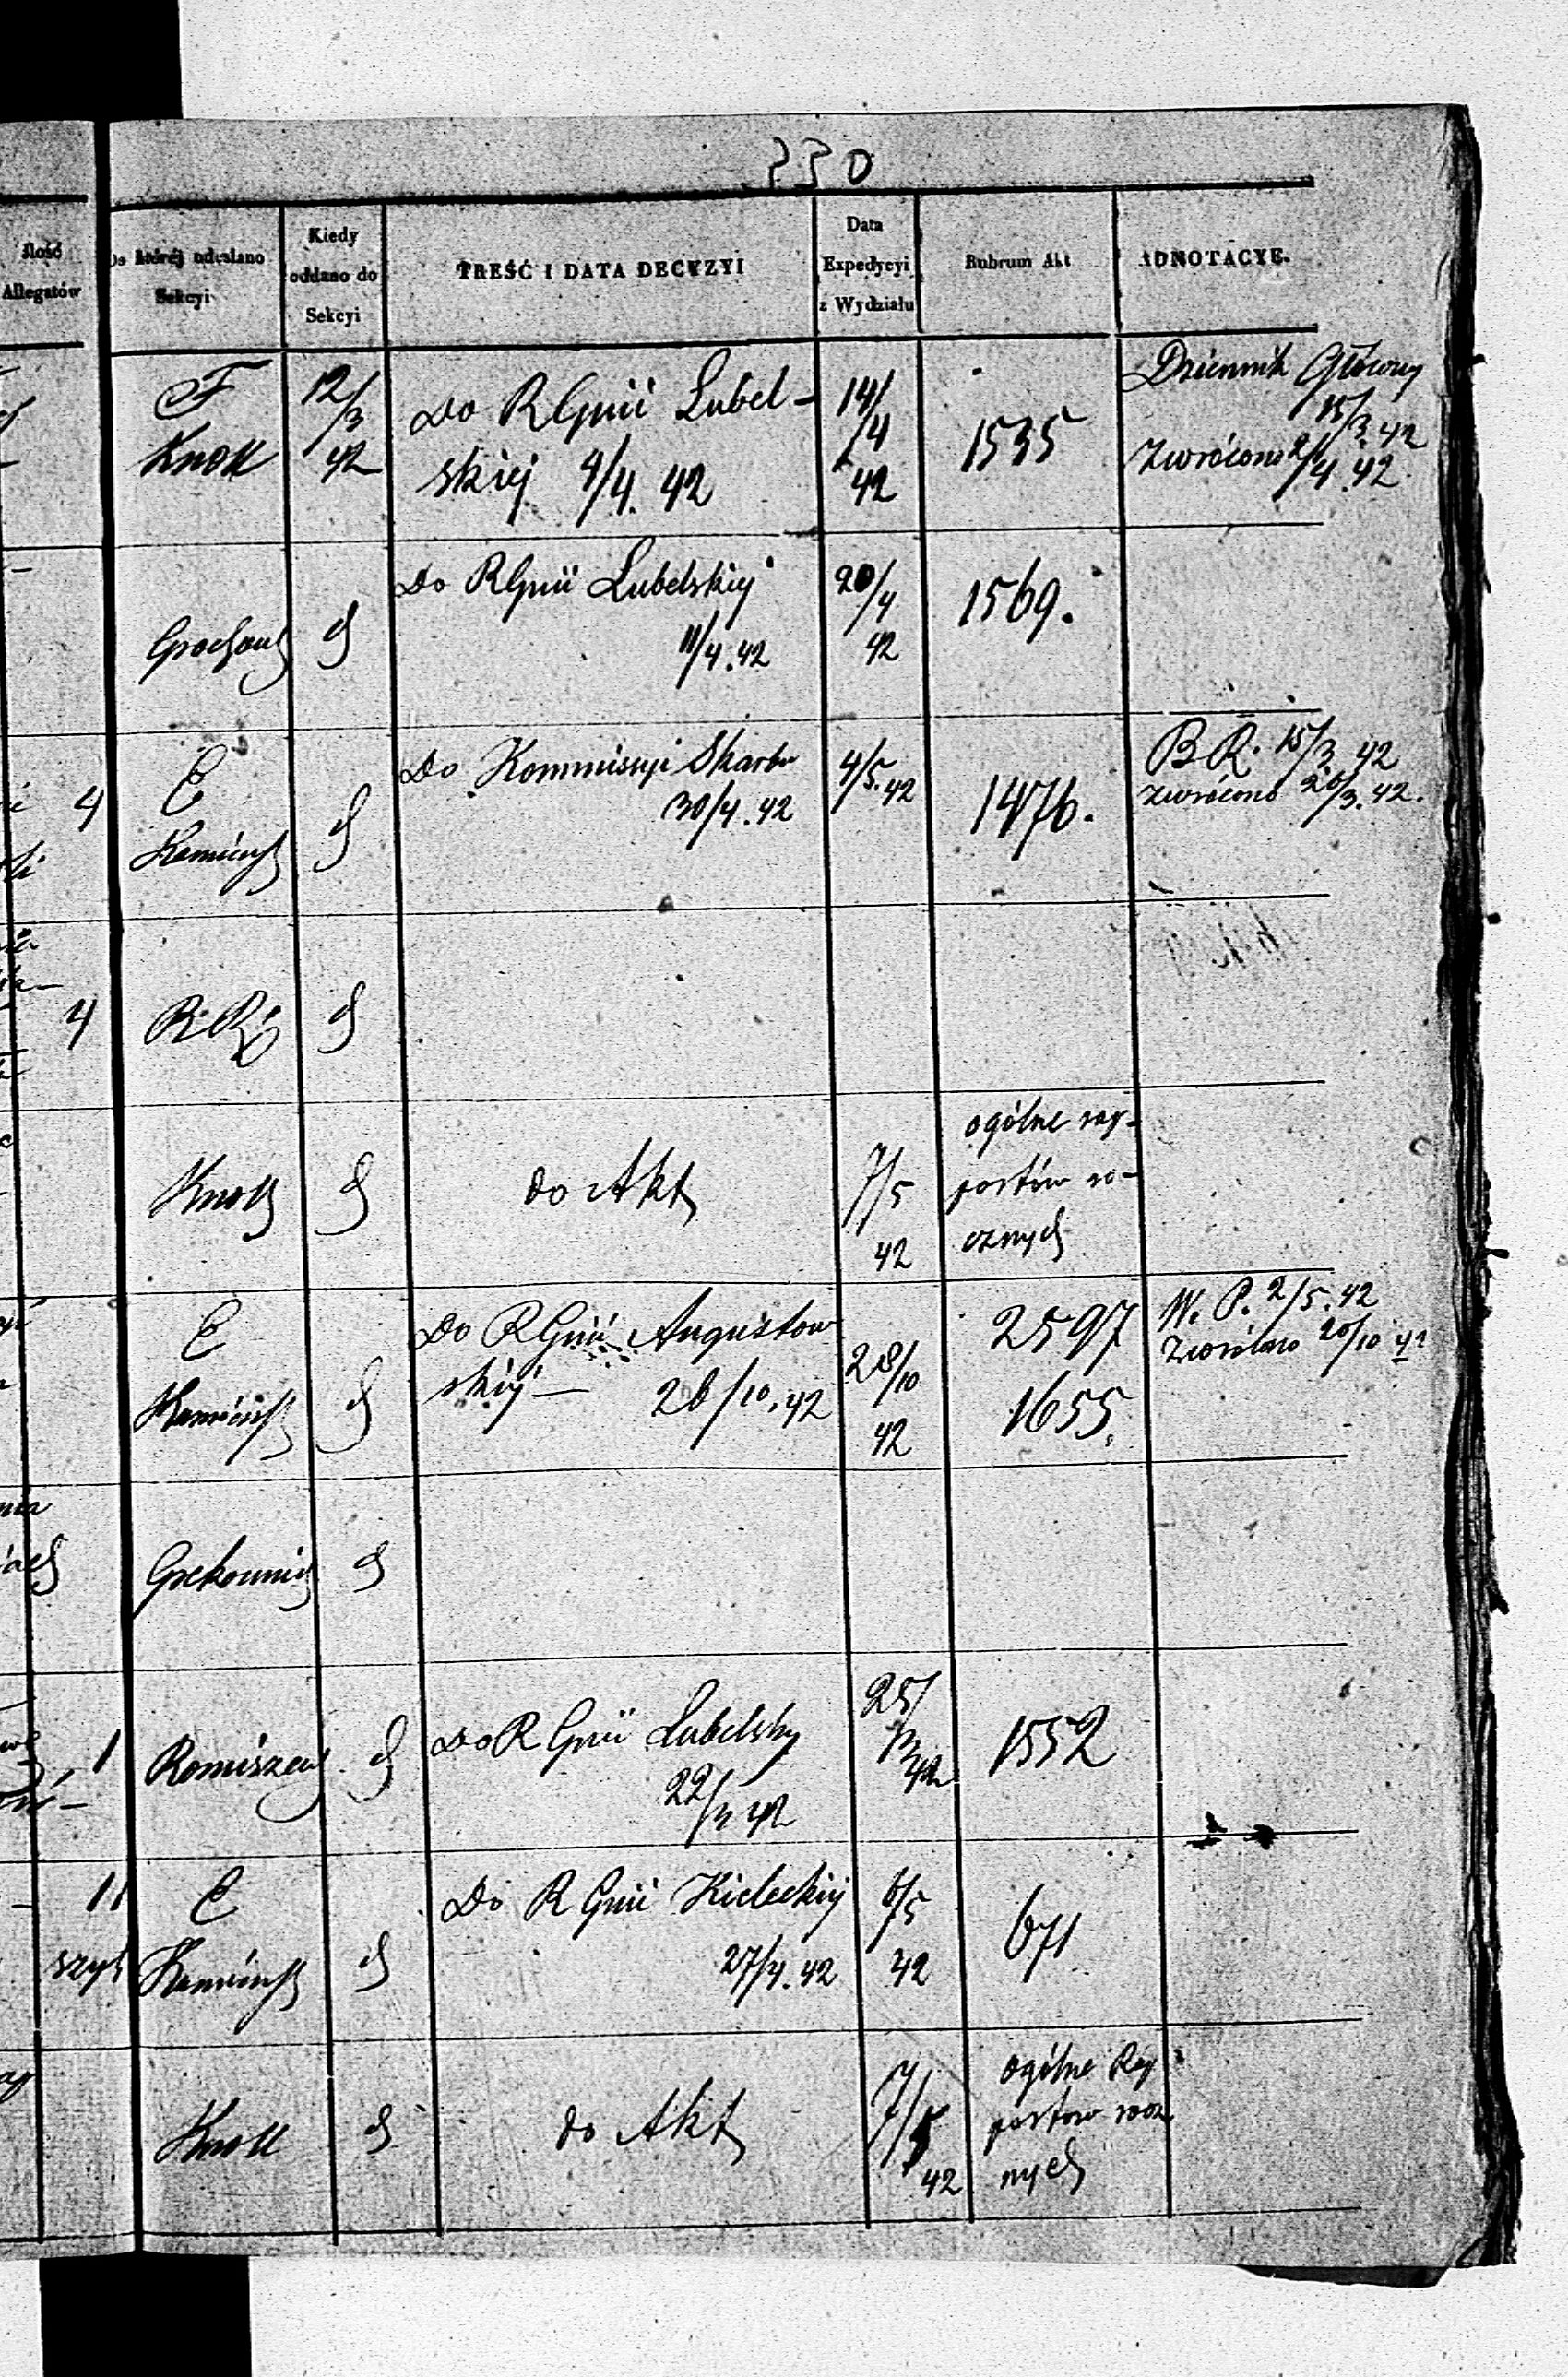 330
Ilość
Allegatów
Do której odesłano
Sekcyi
Kiedy
oddano do
Sekcyi
TREŚĆ I DATA DECYZYI
Data
Expedycyi
z Wydziału
Rubrum Akt
ADNOTACYE.
F
Knoll
12/3
42
Do RGnii Lubel-
skiej 4/4. 42
14/4
42
1535
Dziennik Główny
15/3. 42
Zwrócono 2/4. 42
Do RGnii Lubelskiej
11/4. 42
20/4
42
1569.
4
E
Do Kommissyi Skarbu
30/4. 42
4/5. 42
1476.
B R. 15/3 42
zwrócono 26/3. 42.
4
Knoll
do Akt
7/5
42
ogólne rap-
portów ro-
cznych
E
Do RGnii Augustow
skiej — 26/10. 42
28/10
42
2597
1655.
W. P. 2/5. 42
Zwrócono 20/10 42
1
Romiszew
Do R Gnii Lubelskiej
22/ 42
25/
42
1552
11
E
Do R Gnii Kieleckiej
27/4. 42
6/5
42
671
Knoll
do Akt
7/5
42
ogólne Rap
portów rocz
nych